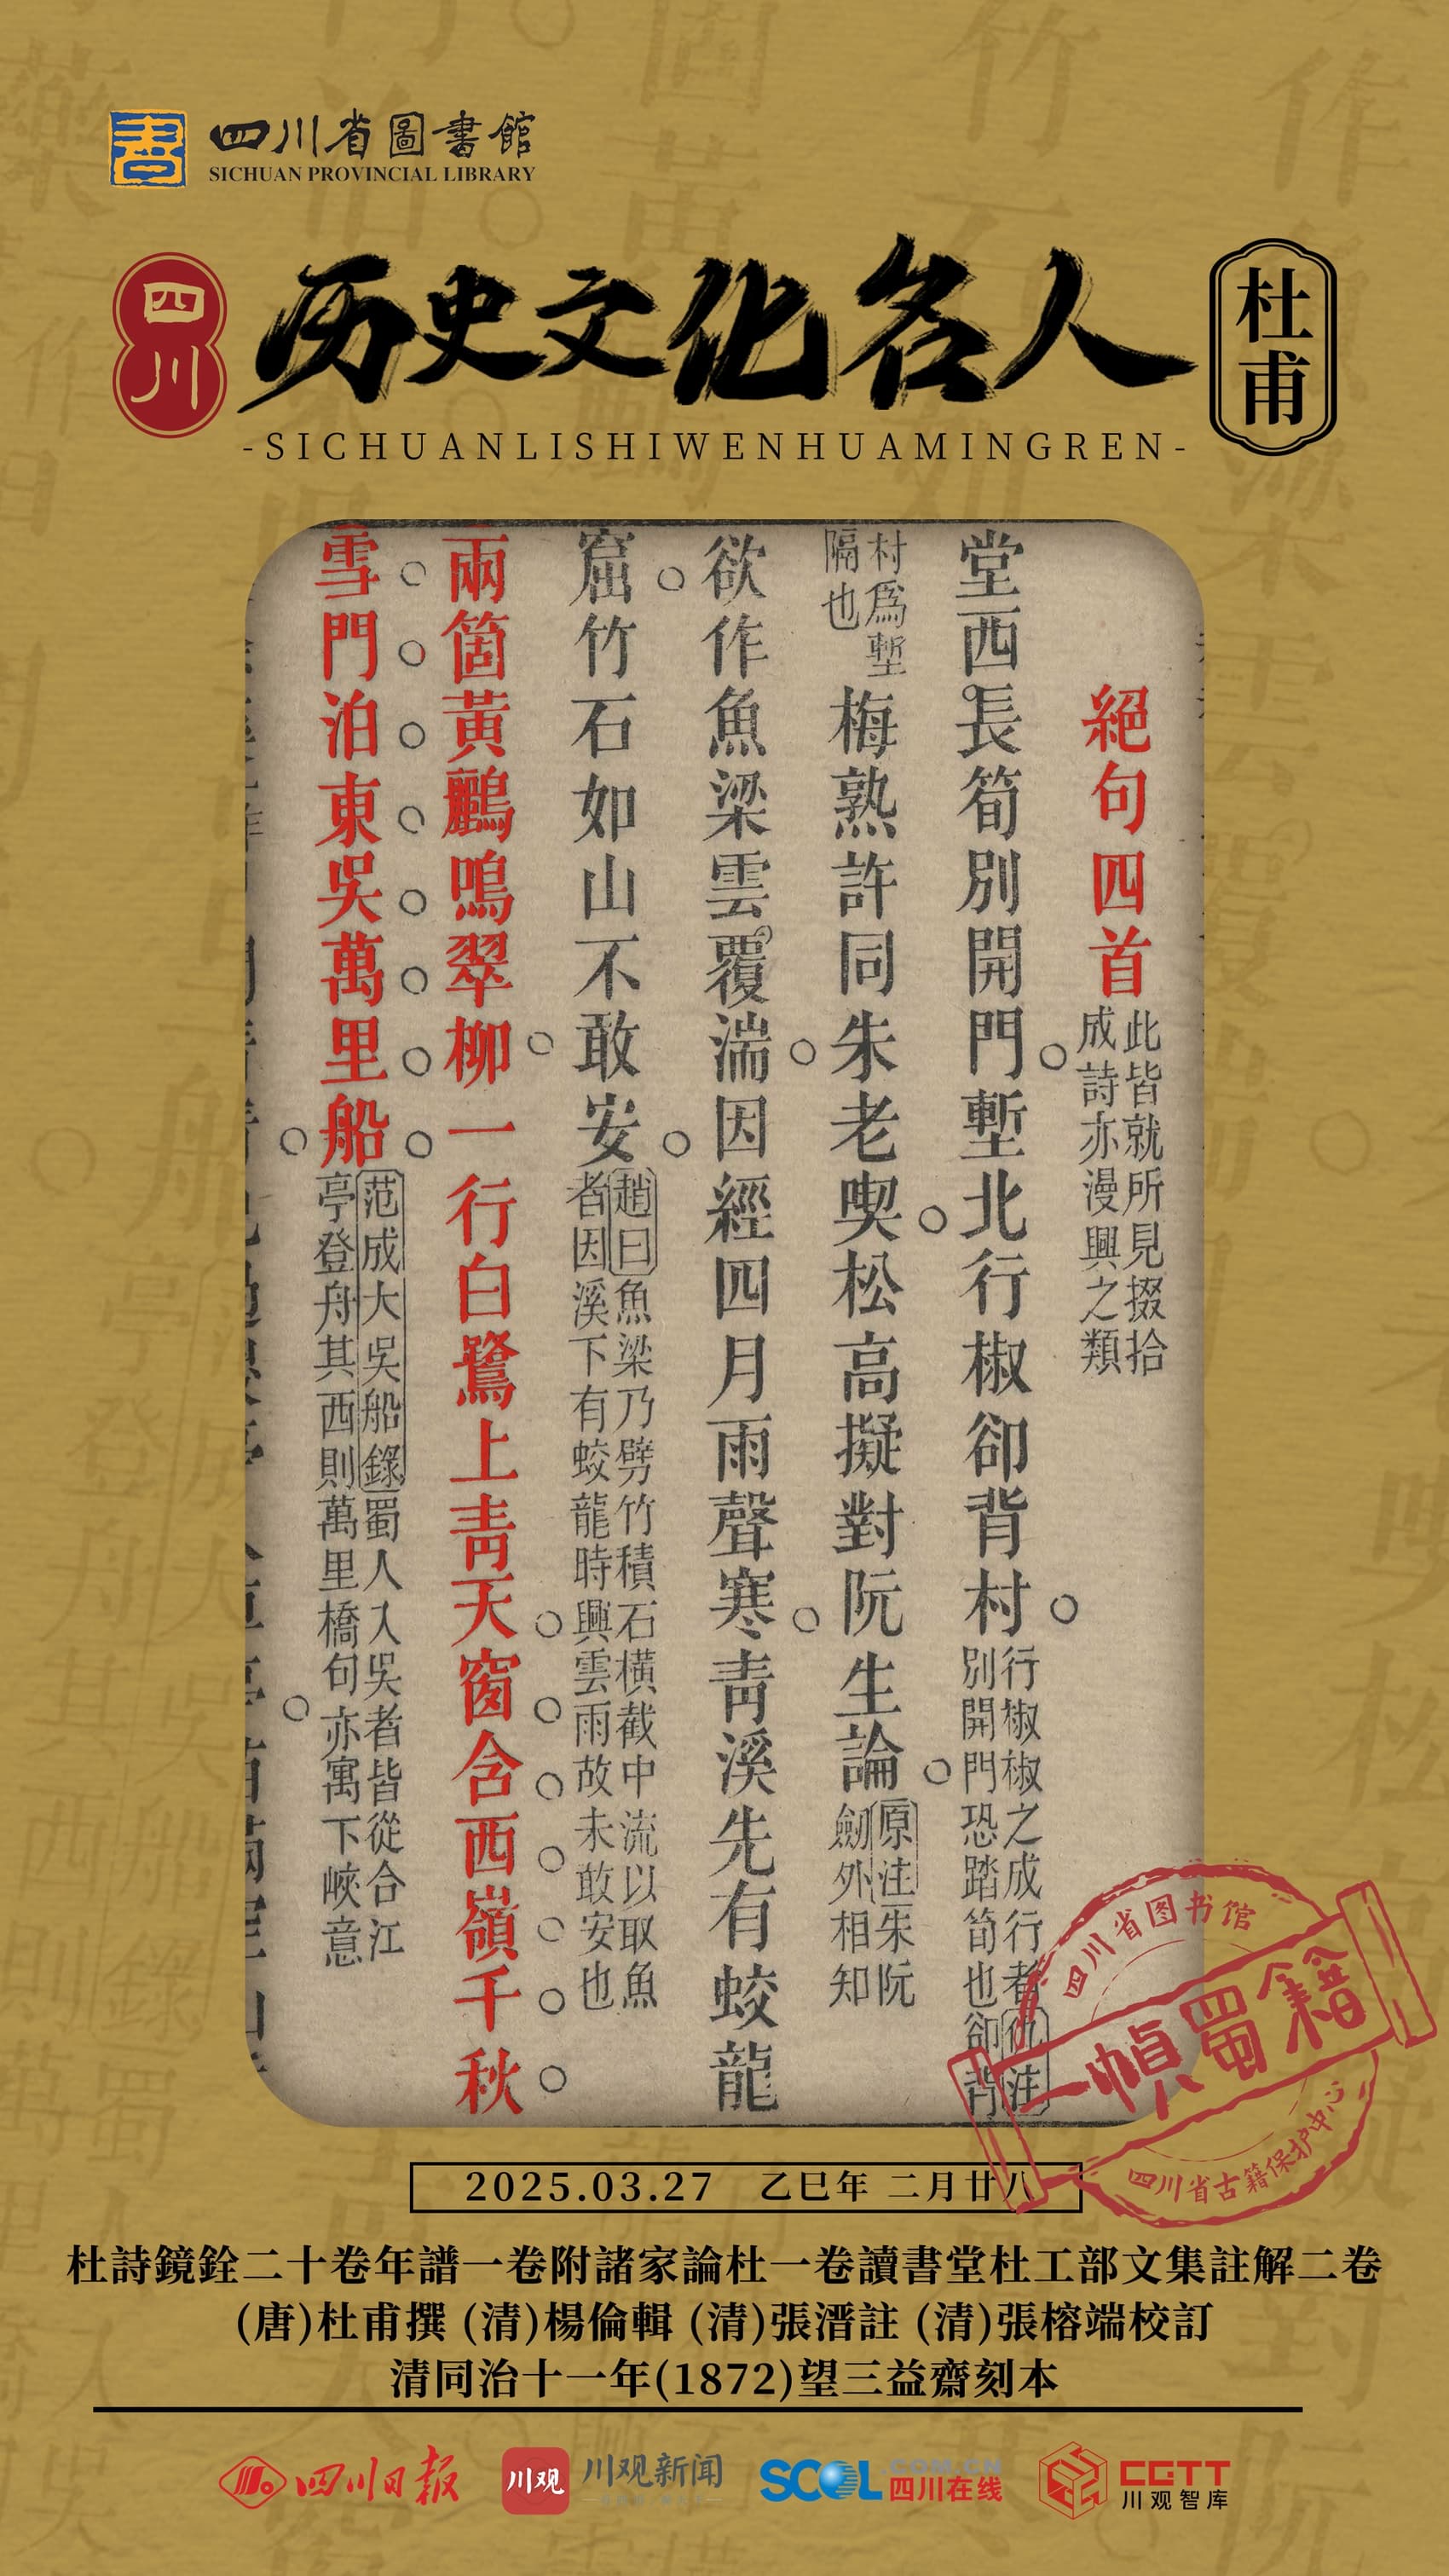 四川省圖書館
SICHUAN PROVINCIAL LIBRARY
四川
历史文化名人
杜甫
-SICHUANLISHIWENHUAMINGREN-
絕句四首
此皆就所見掇拾
成詩亦漫興之類
堂西長筍別開門塹北行椒卻背村
行椒椒之成行者仇注
別開門恐踏筍也卻背
村爲塹
隔也
梅熟許同朱老喫松高擬對阮生論
原注朱阮
劒外相知
欲作魚梁雲覆湍因經四月雨聲寒青溪先有蛟龍
窟竹石如山不敢安
趙曰魚梁乃劈竹積石橫截中流以取魚
者因溪下有蛟龍時興雲雨故未敢安也
兩箇黃鸝鳴翠柳一行白鷺上青天窗含西嶺千秋
雪門泊東吳萬里船
范成大吳船錄蜀人入吳者皆從合江
亭登舟其西則萬里橋句亦寓下峽意
四川省图书馆
一幀蜀籍
四川省古籍保护中心
2025.03.27 乙巳年 二月廿八
杜詩鏡銓二十卷年譜一卷附諸家論杜一卷讀書堂杜工部文集註解二卷
(唐)杜甫撰 (清)楊倫輯 (清)張溍註 (清)張榕端校訂
清同治十一年(1872)望三益齋刻本
四川日报
川观
川观新闻
SCOL.COM.CN
四川在线
CGTT
川观智库